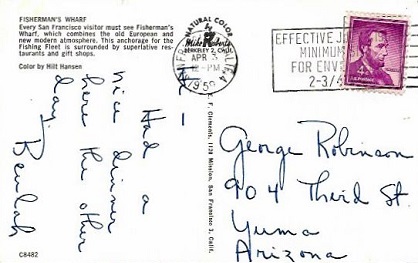 FISHERMAN'S WHARF
Every San Francisco visitor must see Fisherman's
Wharf, which combines the old European and
new modern atmosphere. This anchorage for the
Fishing Fleet is surrounded by superlative res-
taurants and gift shops.
Color by Hilt Hansen
NATURAL COLOR
Mike Roberts
BERKELEY 2, CALIF.
APR 3
12-PM
1959
CALIF. 4
EFFECTIVE
MINIMUM
FOR ENV
2-3/4
4¢
U.S. Postage
F. Clements, 1139 Mission, San Francisco 3, Calif.
Had a
nice dinner
here the other
day.
Beulah
George Robinson
904 Third St.
Yuma
Arizona
C8482